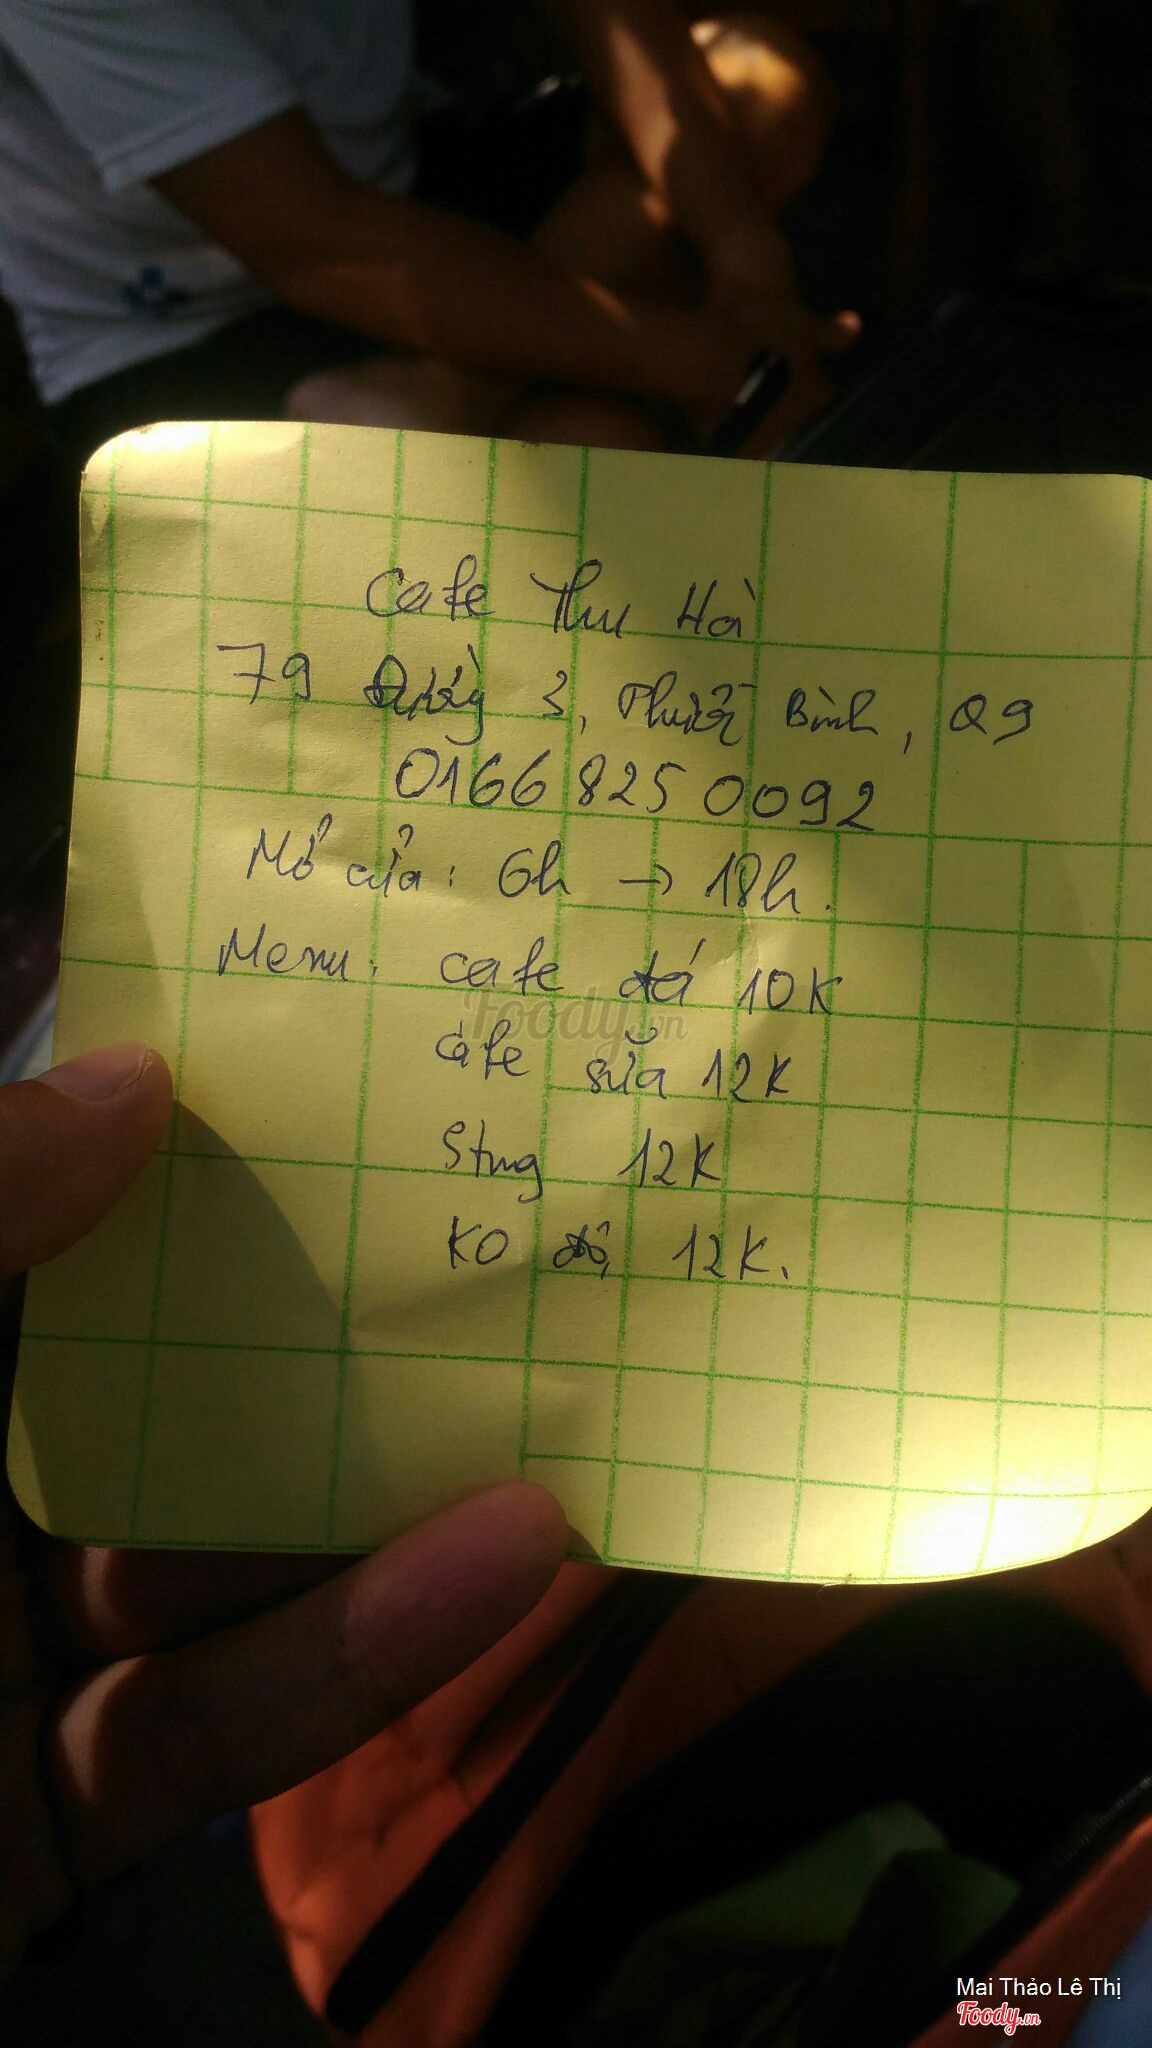 Cafe Thu Hà
79 Đường 3, Phước Bình, Q9
0166 825 0092
Mở cửa: 6h → 18h.
Menu: cafe đá 10K
Foody.vn
cafe sữa 12K
Stng 12K
KO độ 12K.
Mai Thảo Lê Thị
Foody.vn